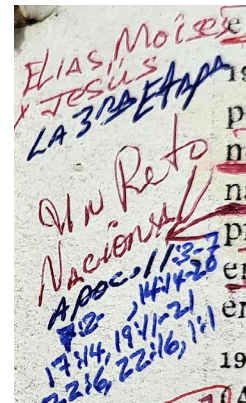 ELIAS, MOISES
Y JESÚS
LA 3RA ETAPA
UN Reto
NACIONAL
APOC. 11:3-7
7:2- , 14:14-20
17:14, 19:11-21
22:6, 22:16, 1:1
19